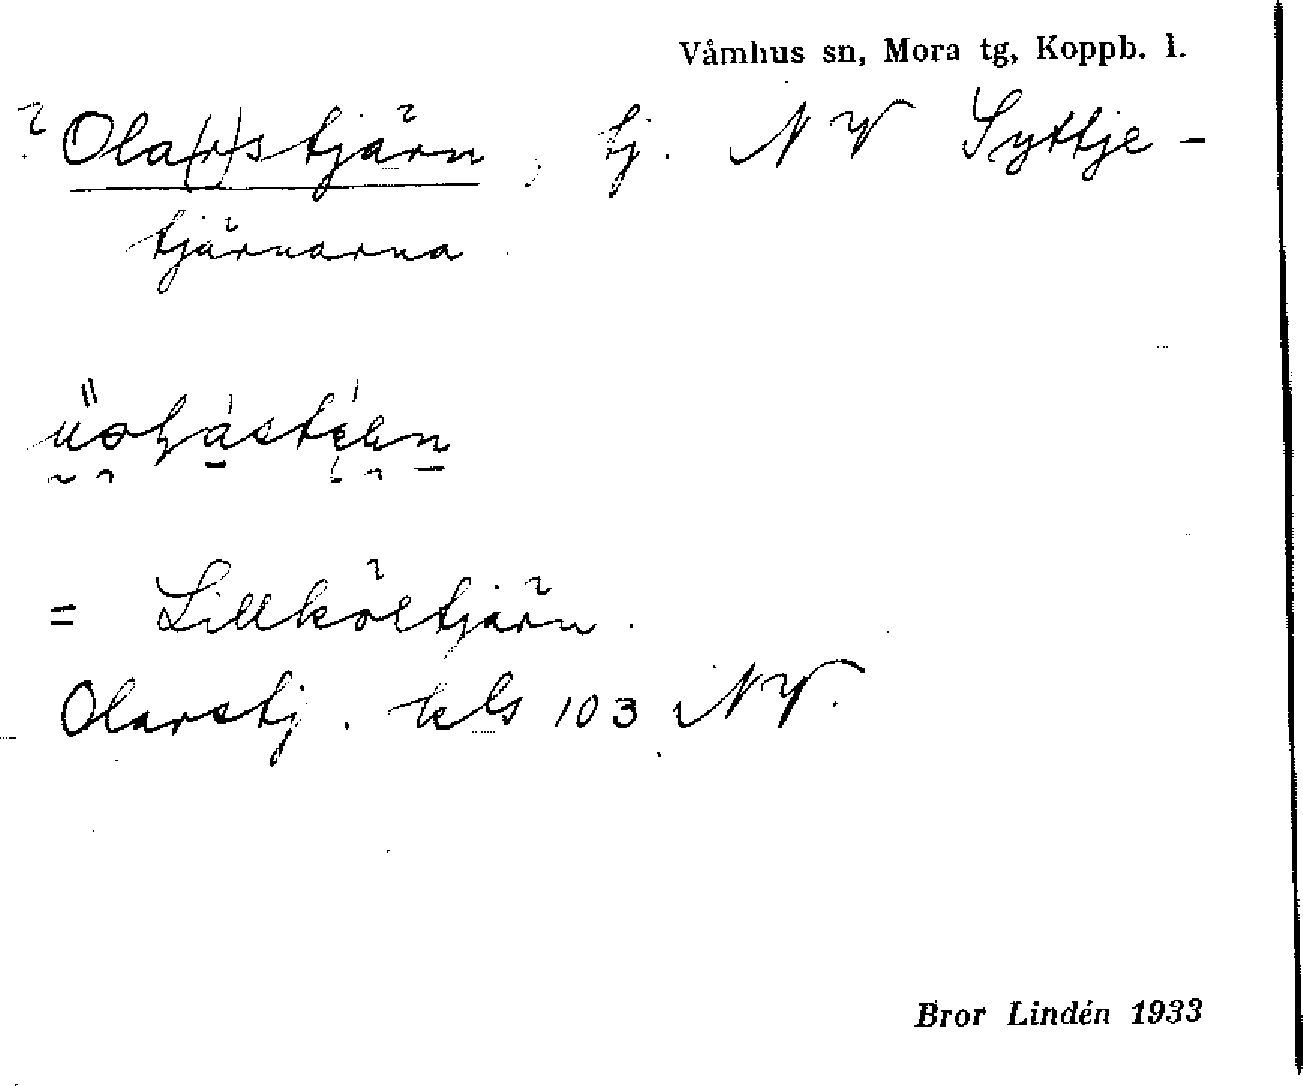 Våmhus sn, Mora tg, Koppb. l.
? Ola(r)stjärn, tj. NV Syttje-
tjärnarna
= Lillköltjärn.
Olarstj. kls 103 NV.
Bror Lindén 1933